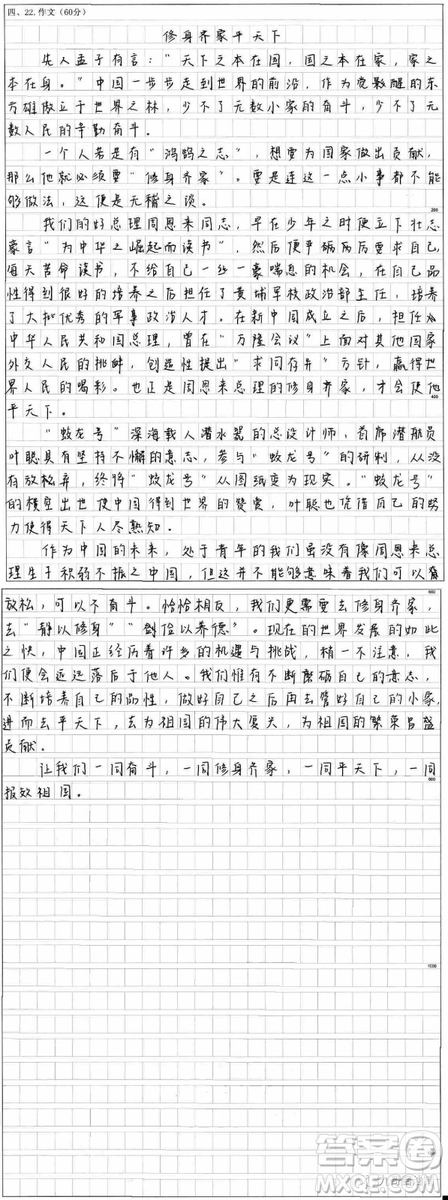 四、22.作文(60分)
修身齐家平天下
先人孟子有言："天下之本在国，国之本在家，家之
本在身。"中国一步步走到世界的前沿，作为觉醒的东
方雄傲立于世界之林，少不了无数小家的奋斗，少不了无
数人民的辛勤奋斗。
一个人若是有"鸿鹄之志"，想要为国家做出贡献，
那么他就必须要"修身齐家"。要是连这一点小事都不能
够做法，这便是无稽之谈。
200
我们的好总理周恩来同志，早在少年之时便立下壮志
豪言"为中华之崛起而读书"，然后便严厉要求自己，
每天苦命读书，不给自己一丝一毫喘息的机会，在自己品
性得到很好的培养之后担任了黄埔军校政治部主任，培养
了大批优秀的军事政治人才。在新中国成立之后，担任
中华人民共和国总理，曾在"万隆会议"上面对其他国家
外交人民的挑衅，创造性提出"求同存异"方针，赢得世
界人民的喝彩。也正是周恩来总理的修身齐家，才会使他
400
平天下。
"蛟龙号"深海载人潜水器的总设计师，首席潜航员
叶聪具有坚持不懈的意志，参与"蛟龙号"的研制，从没
有放松弃，终将"蛟龙号"从图纸变为现实。"蛟龙号"
的横空出世使中国得到世界的赞赏，叶聪也凭借自己的努
力使得天下人尽熟知。
作为中国的未来，处于青年的我们虽没有像周恩来总
理生于积弱不振之中国，但这并不能够意味着我们可以
600
放松，可以不奋斗。恰恰相反，我们更需要去修身齐家，
去"静以修身""俭以养德"。现在的世界发展的如此
之快，中国正经历着许多的机遇与挑战，稍一不注意，我
们便会远远落后于他人。我们惟有不断磨砺自己的意志，
不断培养自己的品性，做好自己之后再去管好自己的小家，
进而去平天下，去为祖国的伟大复兴，为祖国的繁荣昌盛
贡献。
让我们一同奋斗，一同修身齐家，一同平天下，一同
800
报效祖国。
1000
答案圈
MXQE.COM